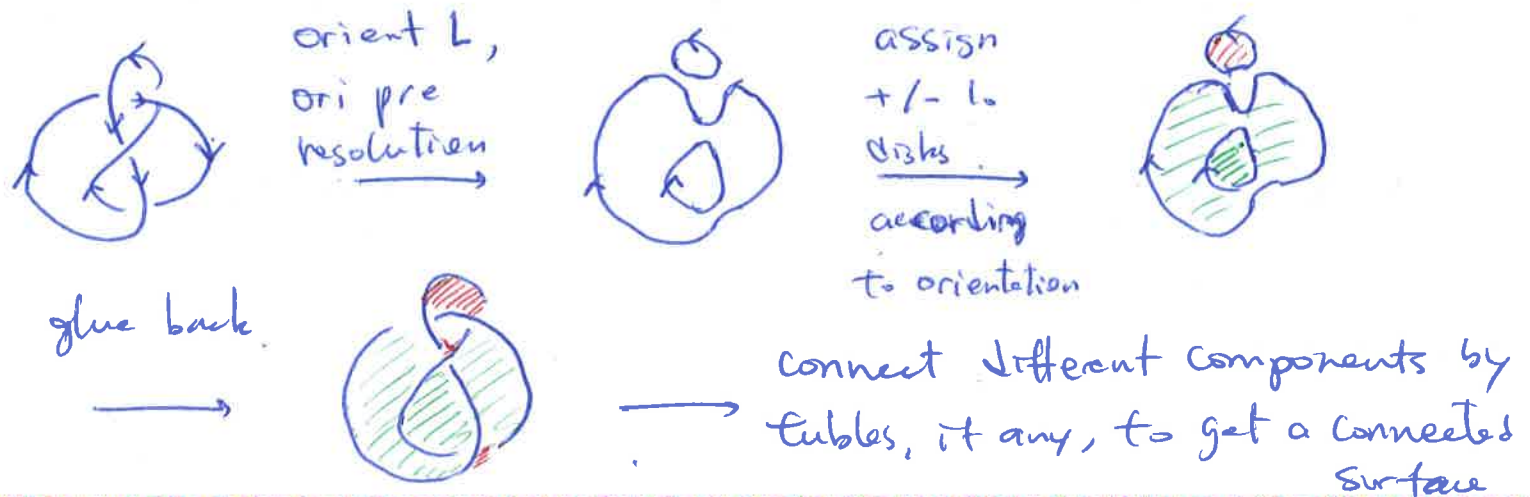 orient L,
ori pre
resolution
assign
+/- to
disks
according
to orientation
glue back.
connect different components by
tubles, if any, to get a connected
surface